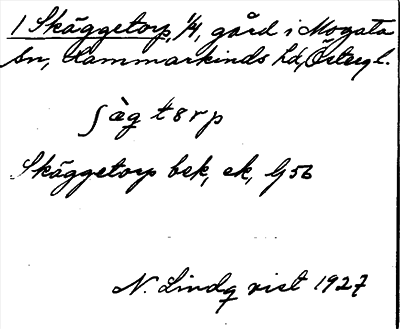 1 Skäggetorp, 1/4, gård i Mogata
Sn, Hammarkinds hd, Östergl.
ʃàg t8rp
Skäggetorp bek, ek, G56
N. Lindqvist 1927